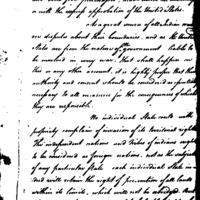 with the express approbation of the United States.
As a great source of all indian wars
are disputes about their boundaries, and as the United
States are from the nature of the government liable to
be involved in every war that shall happen on
this or any other account, it is highly proper that their
authority and consent should be considered as
necessary to all measures for the consequences of which
they are responsible.
No individual State could with
propriety complain of invasion of its territorial rights.
The independent nations and tribes of indians ought
to be considered as foreign nations, not as the subjects
of any particular state. each individual state in
deed will retain the right of preemption of all lands
within its limits, which will not be abridged. But